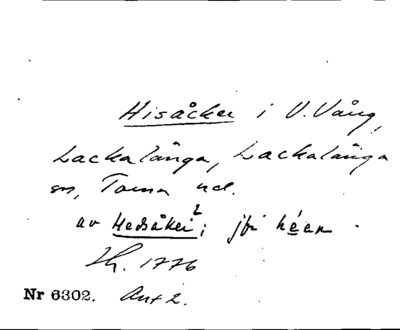 Hisåcker i V. Vång,
Lackalänga, Lackalänga
sn, Torna hd.
av Hedsåker²; jfr héan
Lh. 1776
Nr 6302. Ant 2.